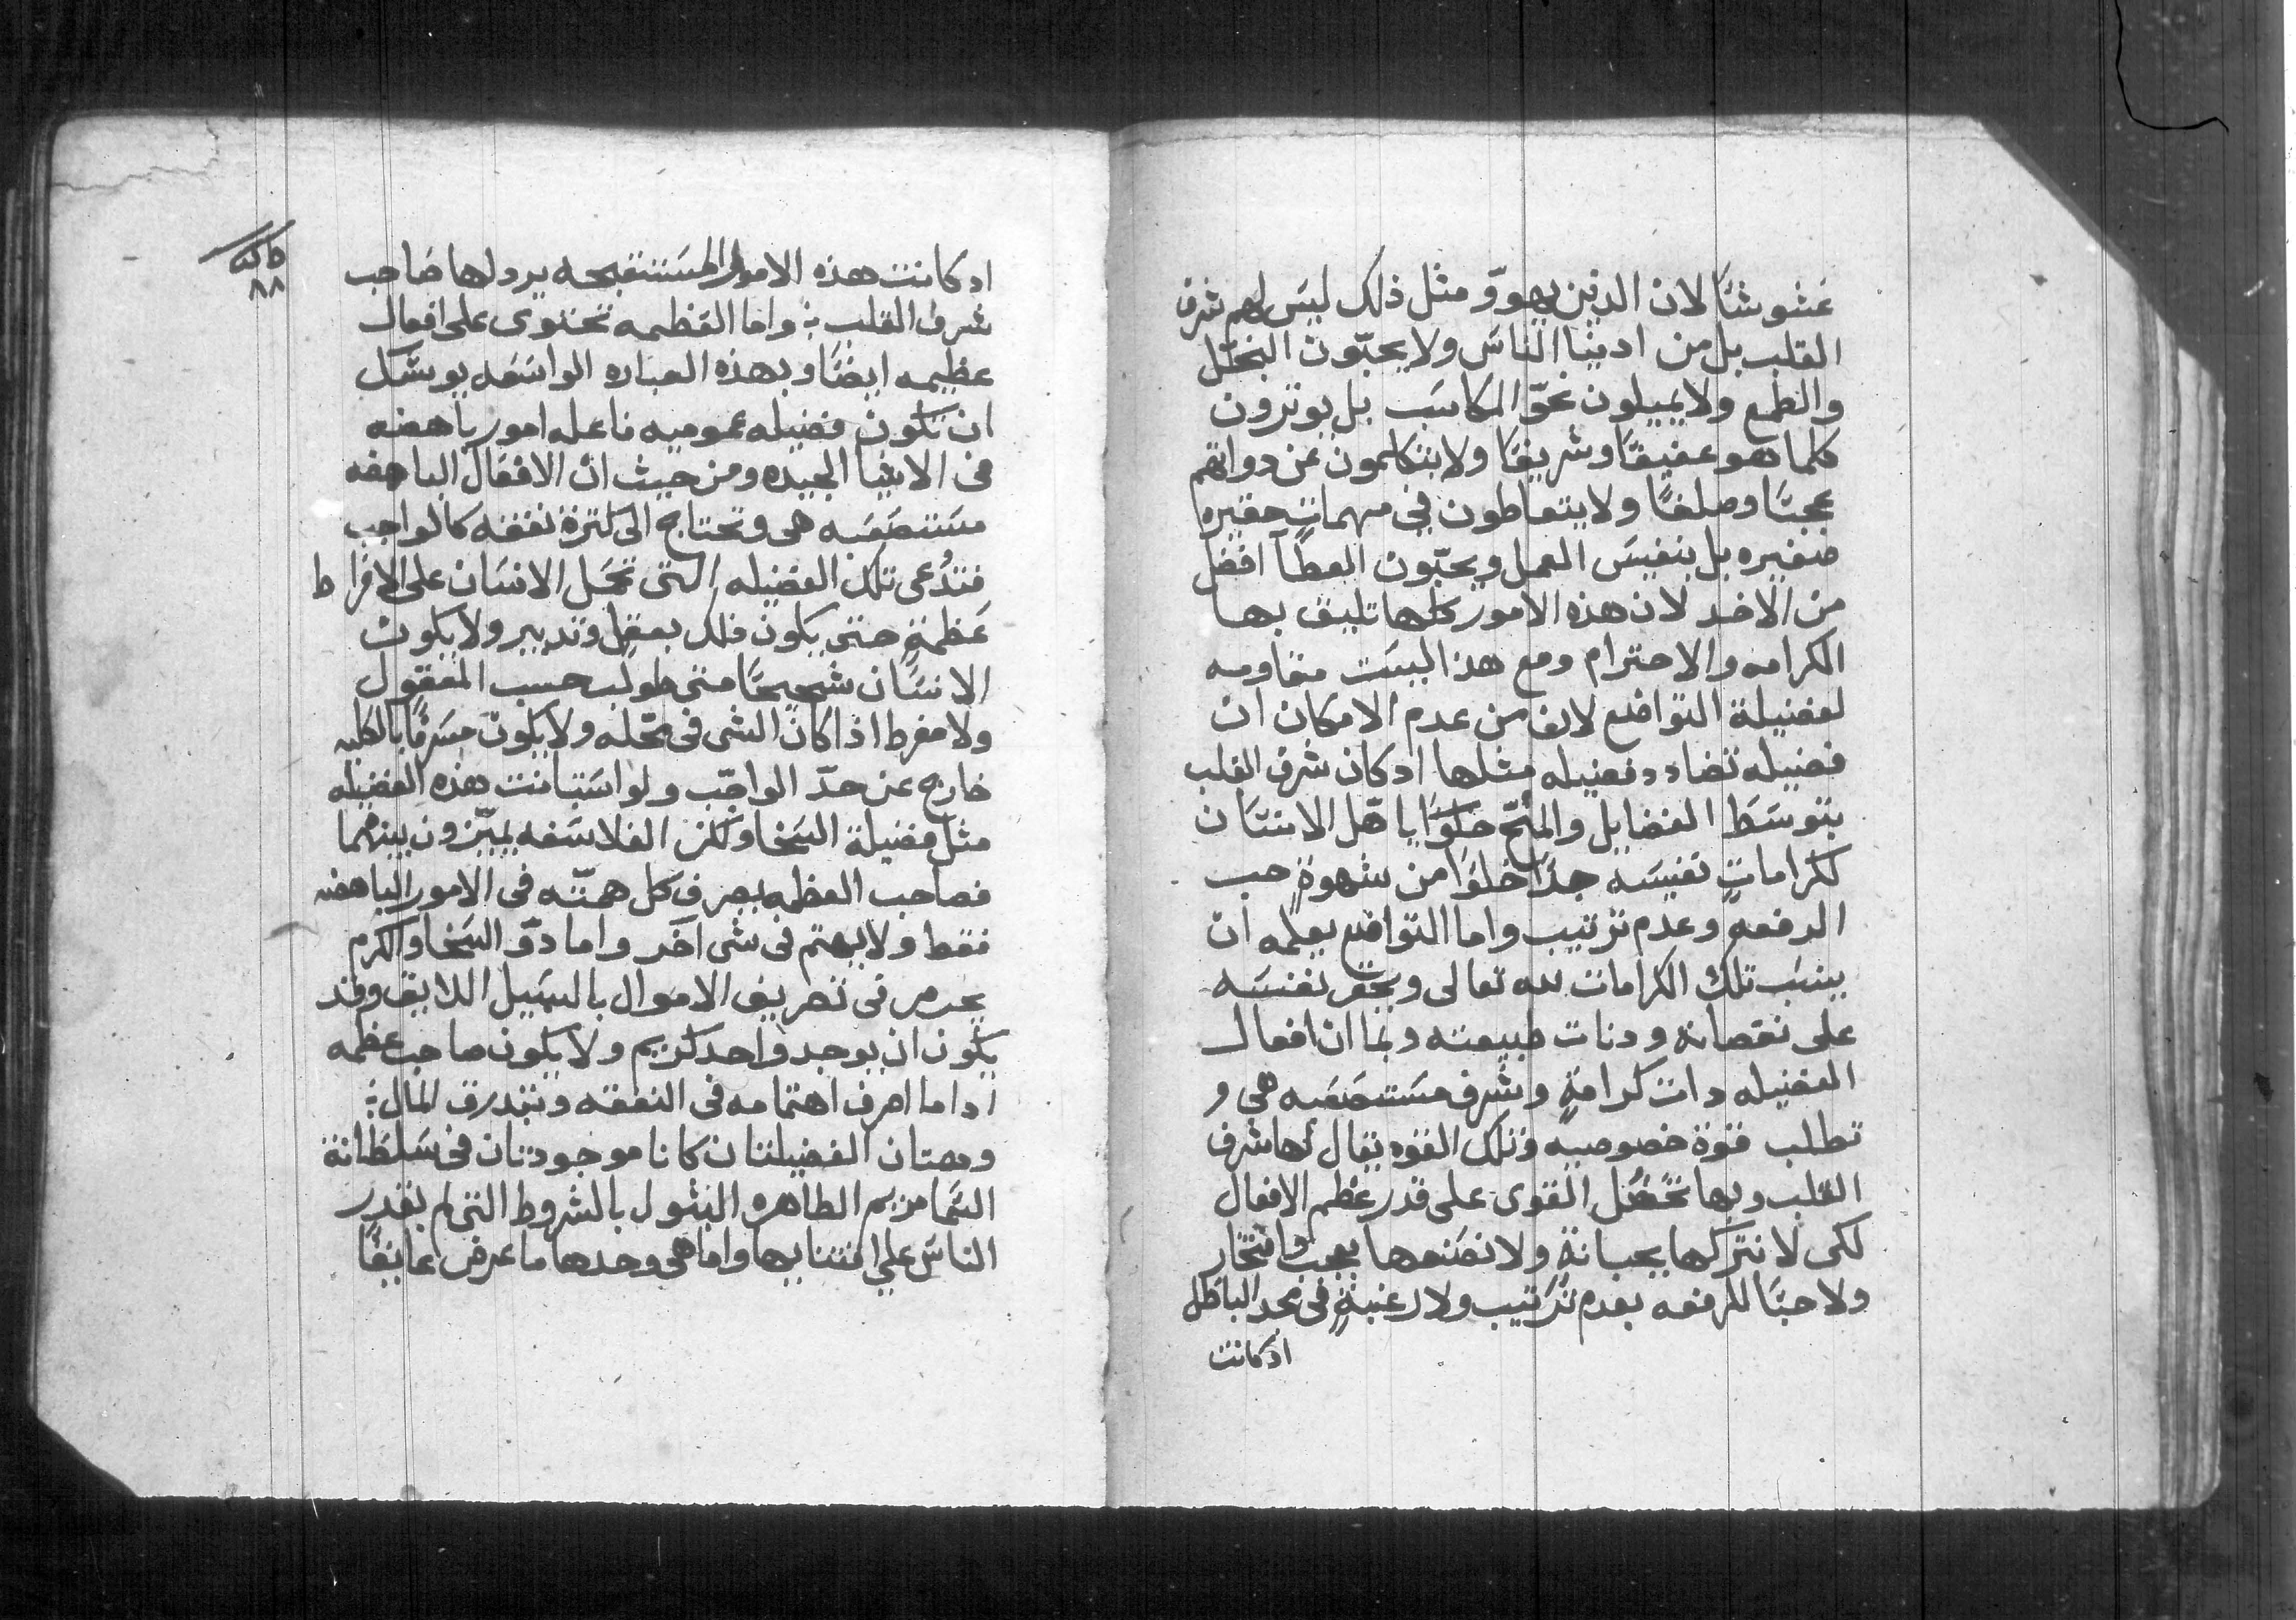 غشوشًا لان الدين يهوو مثل ذلك ليس لهم شرف
القلب بل من ادنيا الناس ولا يحبّون البخل
والطمع ولا يميلون نحوّ المكاسب بل يوترون
كلما هو عفيفًا وشريفًا ولا يتكلمون عن دواتهم
عجبًا وصلفًا ولا يتعاطون في مهماتٍ حقيره
صغيره بل بنفيس العمل ويحبّون العطآ افضل
من الاخد لان هذه الامور كلها تليق بها
الكرامه والاحترام ومع هذا ليست مقاومه
لفضيلة التواضع لانه من عدم الامكان ان
فضيله تضادد فضيله مثلها ادكان شرف القلب
بتوسط الفضايل والمنح خلوًا ياهّل الانسان
لكراماتٍ نفيسه جدًا خلوًا من شهوةٍ حب
الرفعه وعدم ترتيب واما التواضع يعلمه ان
ينسب تلك الكرامات لله تعالى ويحقر نفسه
على نقصانه ودنات طبيعته وبما ان افعال
الفضيله دات كرامةٍ وشرف مستصعبه هي و
تطلب قوة خصوصيه وتلك القوه يقال لها شرف
القلب وبها تحصل القوى على قدر عظم الافعال
لكى لا نتركها بجبانةٍ ولا نصنعها بعجب وافتخار
ولا حبًا للرفعه بعدم ترتيب ولا رغبةٍ في مجد الباطل
ادكانت
٨٨
ادكانت هذه الامور المستقبحه يردلها صاحب
شرف القلب واما العظمه تحتوى على افعال
عظيمه ايضًا وبهذه العباره الواسعه يوشك
ان تكون فضيله عموميه فاعله امور باهضه
في الاشيا الجيده ومن حيث ان الافعال الباهضه
مستصعبه هي وتحتاج الى كثرة نفقه كالواجب
فتدُعى تلك الفضيله التي تحمل الانسان على الافراط
عظمةٍ حتى يكون فلك بعقل وتدبير ولا يكون
الانسان شحيحًا متى طولب حسب المعقول
ولا مفرط اذا كان الشي في محّله ولا يكون مسرفًا بالكليه
خارج عن حدّ الواجب ولو استبانت هذه الفضيله
مثل فضيلة السخا ولكن الفلاسفه يميّزون بينهما
فصاحب العظمه يصرف كل همّته في الامور الباهضه
فقط ولا يهتم في شي آخر واما دوّ السخا والكرم
يحرص في تصريف الاموال بالسبيل اللايق وقد
يكون ان يوجد واحد كريم ولا يكون صاحب عظمه
اداما اصرف اهتمامه في النفقه وتبدرق المال
وهتان الفضيلتان كانا موجودتان في سلطانة
السما مريم الطاهره البتول بالشروط التي لم يقدر
الناس على اقتنايها واما هي وحدها ما عرض عايقًا